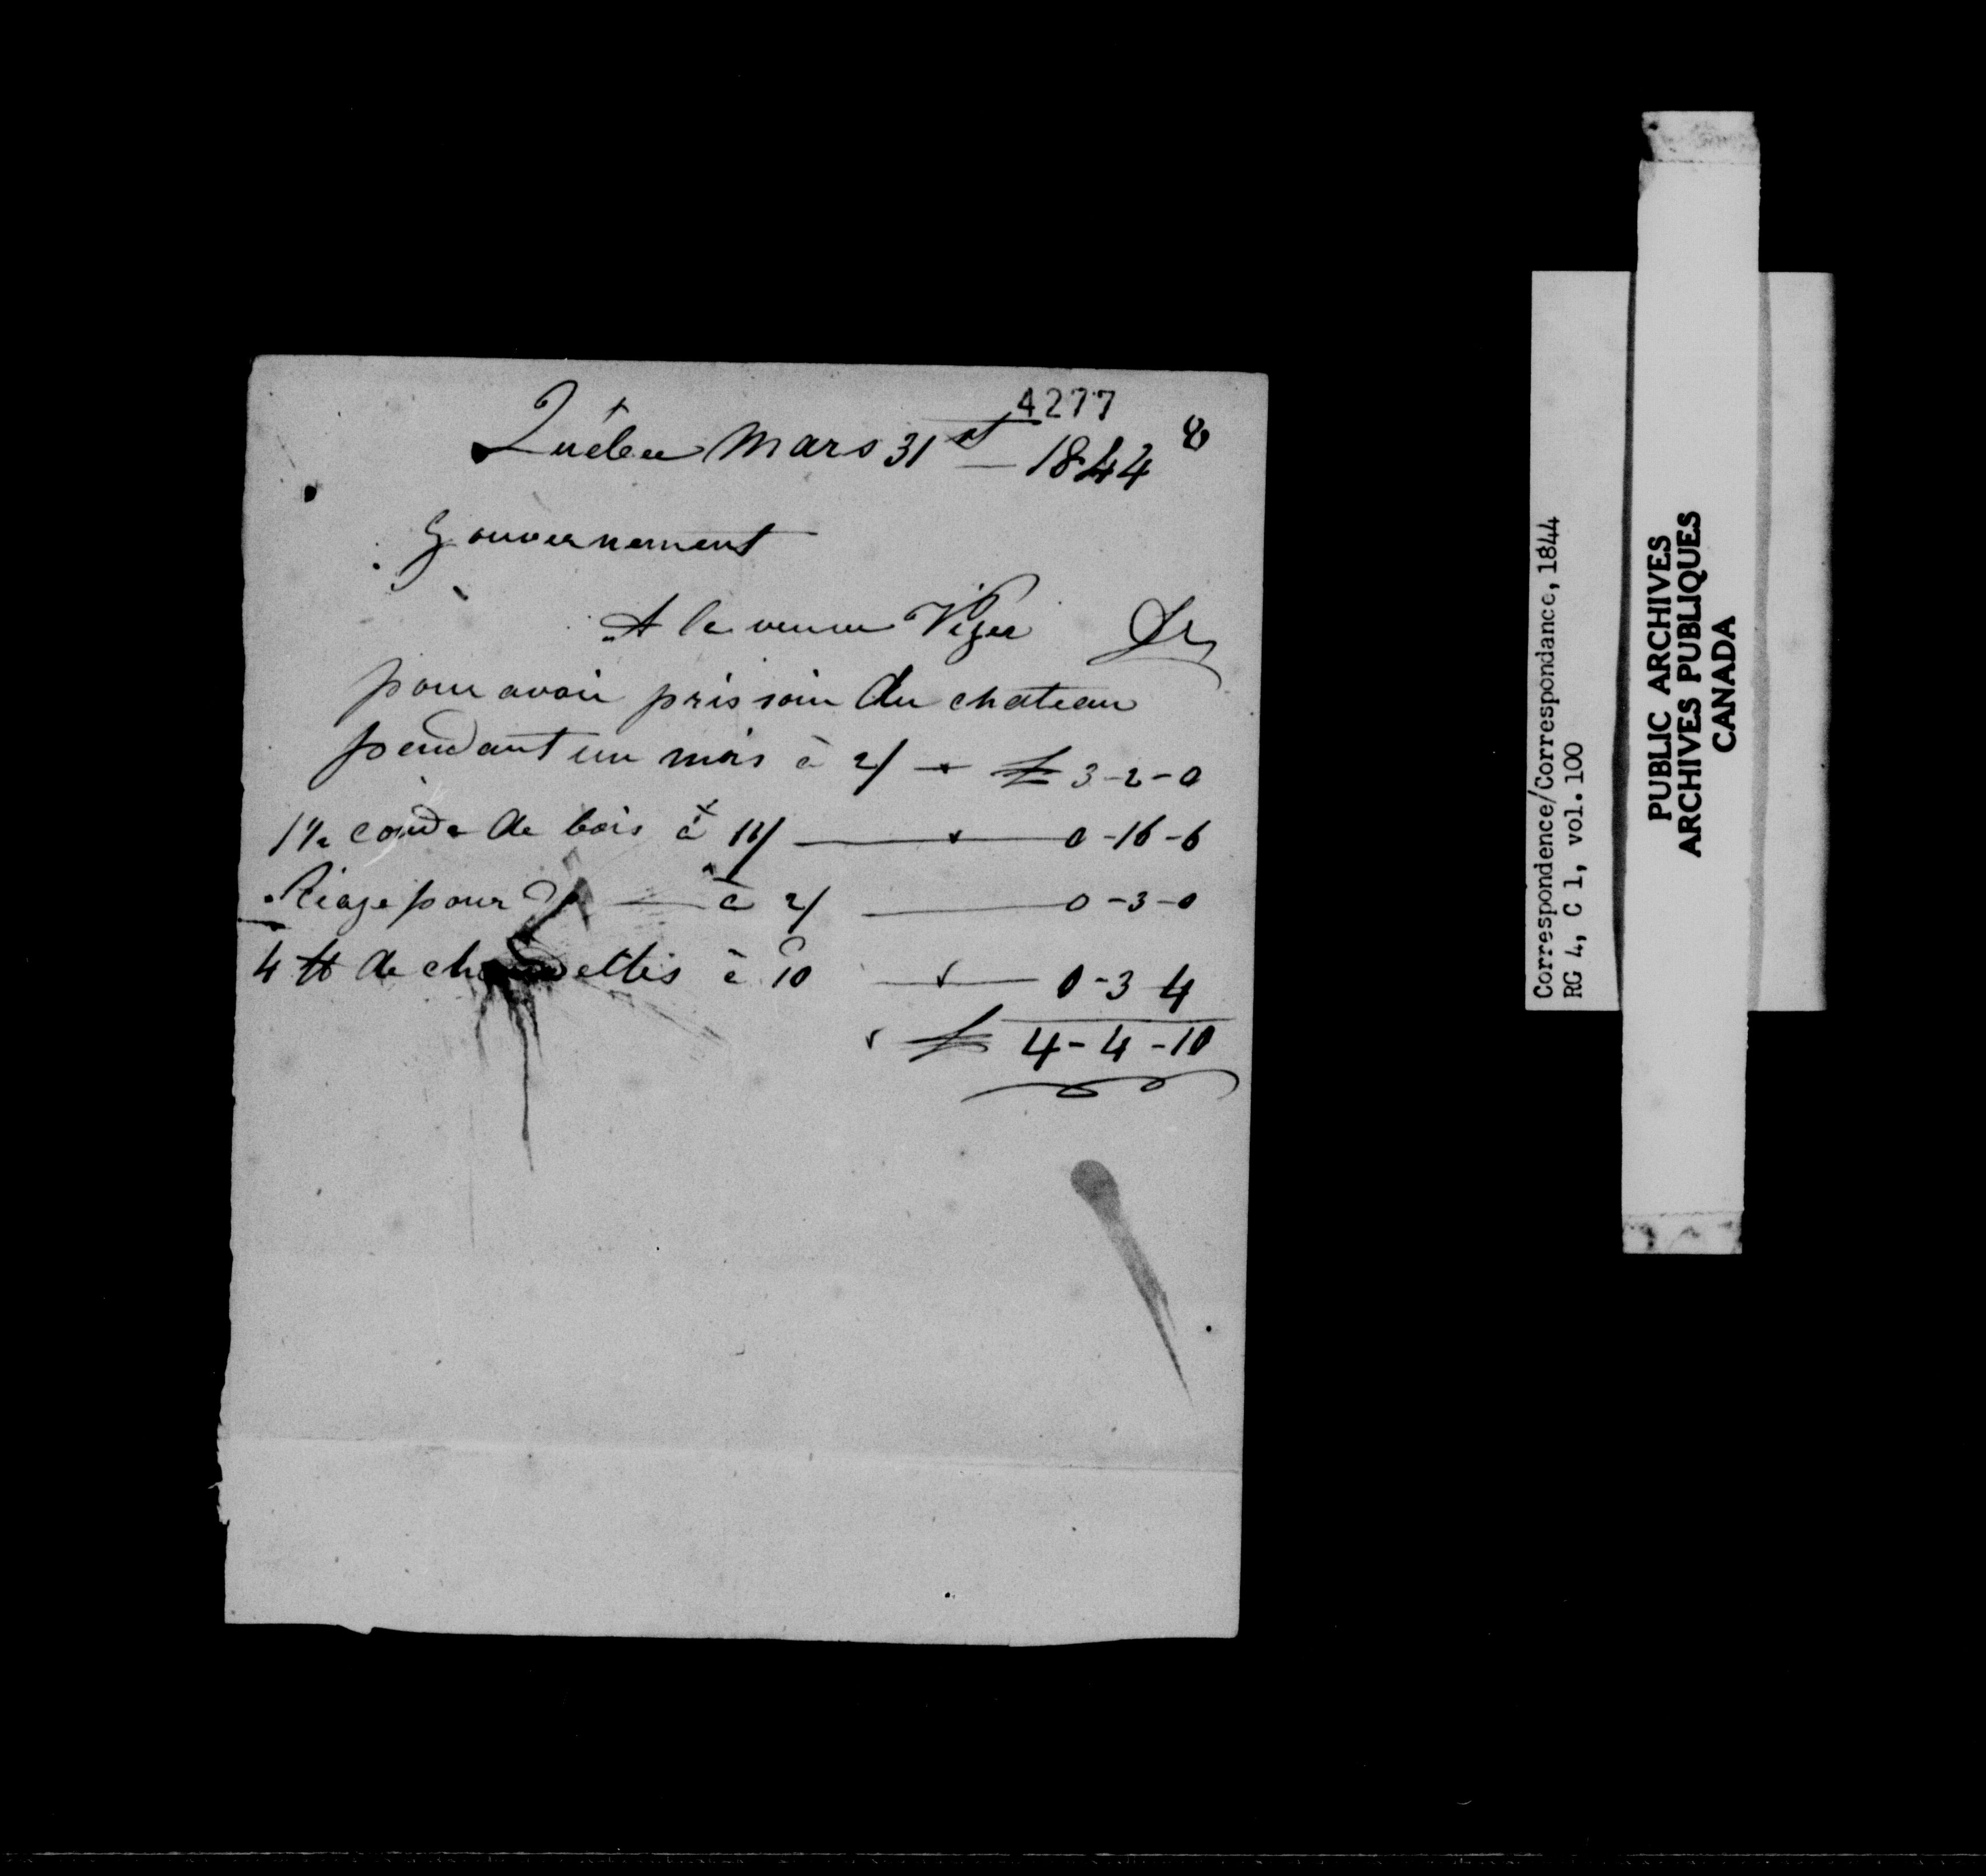 4277
8
Québec Mars 31st — 1844
Gouvernement
A la veuve Viger Dr
pour avoir pris soin du chateau
pendant un mois à 2/ — £ 3-2-0
1½ corde de bois à 11/ — 0-16-6
Siage pour Do — à 2/ — 0-3-0
4 ℔ de chandelles à 10 — 0-3 4
£ 4-4-10
Correspondence/Correspondance, 1844
RG 4, C 1, vol. 100
PUBLIC ARCHIVES
ARCHIVES PUBLIQUES
CANADA